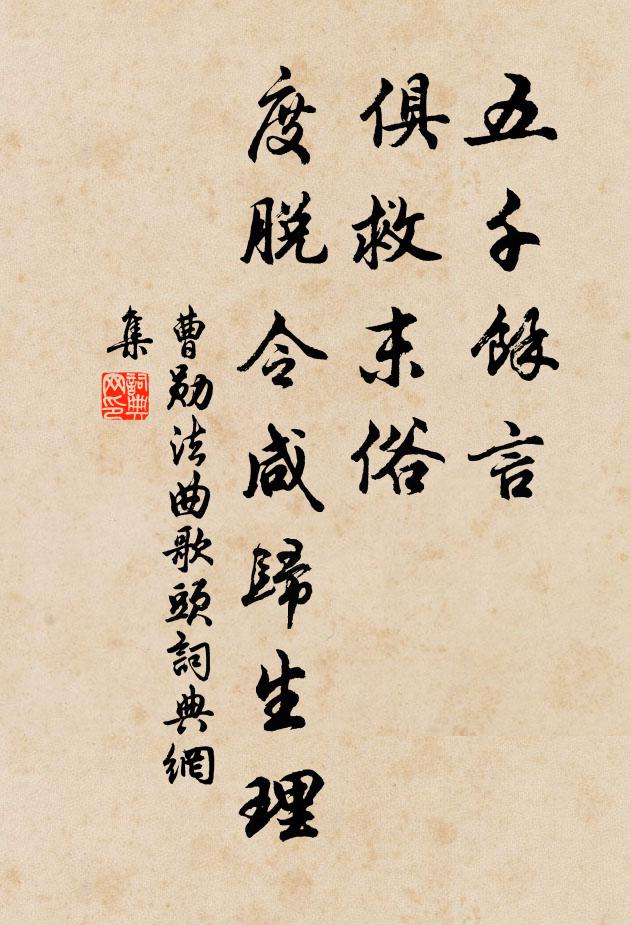 五千餘言
俱救末俗
度脱令咸歸生理
曹勛法曲歌頭詞典網
集
詞典網印